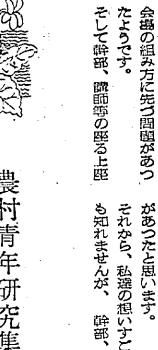 会場の組み方に先づ問題があつ
たようです。
そして幹部、講師等の座る上座
があつたと思います。
それから、私達の想いすご
も知れませんが、幹部、
農村青年研究集